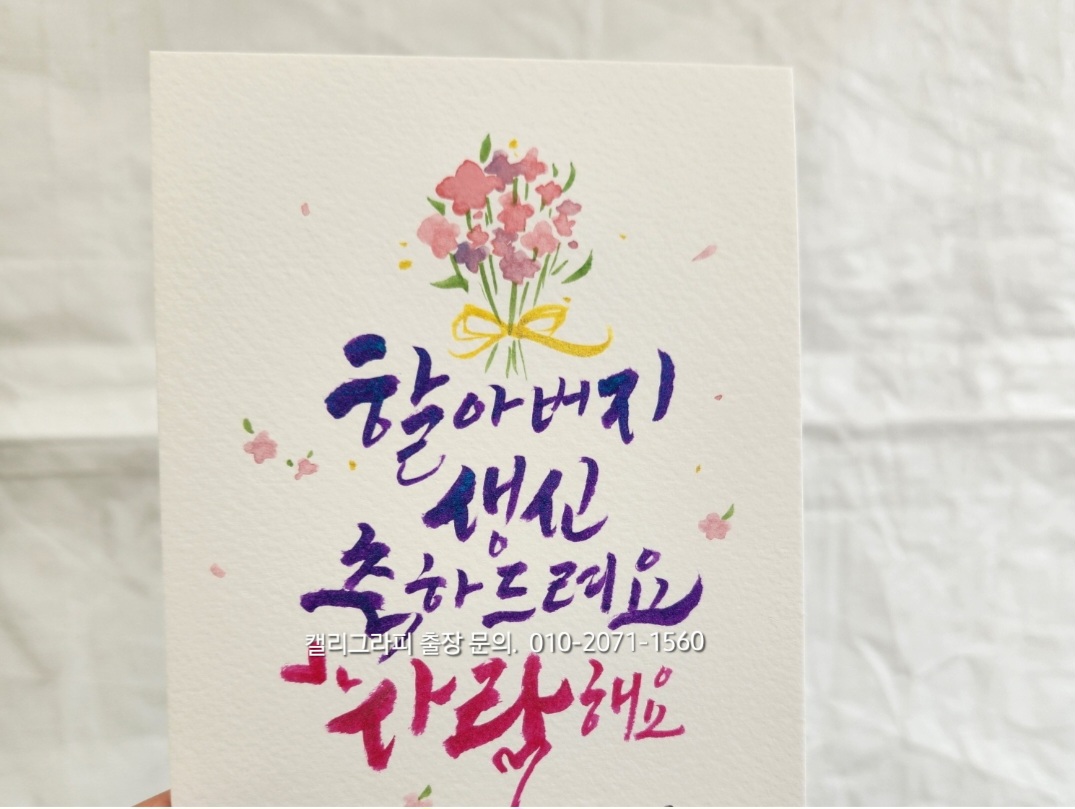 할아버지
생신
축하드려요
캘리그라피 출장 문의. 010-2071-1560
사랑해요